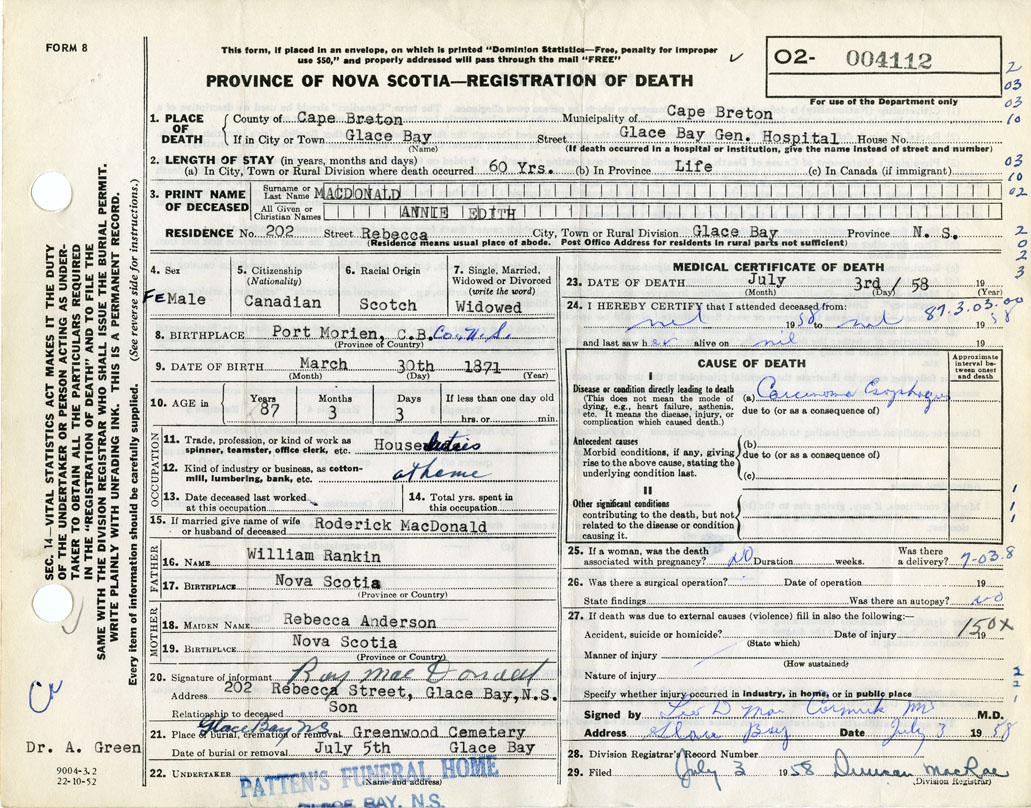 FORM 8
This form, if placed in an envelope, on which is printed "Dominion Statistics—Free, penalty for improper
use $50," and properly addressed will pass through the mail "FREE"
PROVINCE OF NOVA SCOTIA—REGISTRATION OF DEATH
O2- 004112
For use of the Department only
SEC. 14—VITAL STATISTICS ACT MAKES IT THE DUTY
OF THE UNDERTAKER OR PERSON ACTING AS UNDER-
TAKER TO OBTAIN ALL THE PARTICULARS REQUIRED
IN THE "REGISTRATION OF DEATH" AND TO FILE THE
SAME WITH THE DIVISION REGISTRAR WHO SHALL ISSUE THE BURIAL PERMIT.
WRITE PLAINLY WITH UNFADING INK. THIS IS A PERMANENT RECORD.
Every item of information should be carefully supplied. (See reverse side for instructions.)
1. PLACE OF DEATH
County of Cape Breton Municipality of Cape Breton
If in City or Town Glace Bay Street Glace Bay Gen. Hospital House No.
(Name) (If death occurred in a hospital or institution, give the name instead of street and number)
2. LENGTH OF STAY (in years, months and days)
(a) In City, Town or Rural Division where death occurred 60 Yrs. (b) In Province Life (c) In Canada (if immigrant)
3. PRINT NAME OF DECEASED
Surname or Last Name MACDONALD
All Given or Christian Names ANNIE EDITH
RESIDENCE No. 202 Street Rebecca City, Town or Rural Division Glace Bay Province N. S.
(Residence means usual place of abode. Post Office Address for residents in rural parts not sufficient)
4. Sex FeMale
5. Citizenship (Nationality) Canadian
6. Racial Origin Scotch
7. Single, Married, Widowed or Divorced (write the word) Widowed
8. BIRTHPLACE Port Morien, C.B. Co. N.S.
(Province or Country)
9. DATE OF BIRTH March 30th 1871
(Month) (Day) (Year)
10. AGE in Years 87 Months 3 Days 3 If less than one day old hrs. or min.
OCCUPATION
11. Trade, profession, or kind of work as
spinner, teamster, office clerk, etc. House duties
12. Kind of industry or business, as cotton-
mill, lumbering, bank, etc. at home
13. Date deceased last worked at this occupation
14. Total yrs. spent in this occupation
15. If married give name of wife or husband of deceased Roderick MacDonald
FATHER
16. NAME William Rankin
17. BIRTHPLACE Nova Scotia
(Province or Country)
MOTHER
18. MAIDEN NAME Rebecca Anderson
19. BIRTHPLACE Nova Scotia
(Province or Country)
20. Signature of informant Roy Mac Donald
Address 202 Rebecca Street, Glace Bay, N.S.
Relationship to deceased Son
21. Place of burial, cremation or removal Glace Bay NS Greenwood Cemetery
Date of burial or removal July 5th Glace Bay
22. UNDERTAKER
(Name and address)
PATTEN'S FUNERAL HOME
GLACE BAY, N.S.
Dr. A. Green
9004-3.2
22-10-52
MEDICAL CERTIFICATE OF DEATH
23. DATE OF DEATH July 3rd / 58 19
(Month) (Day) (Year)
24. I HEREBY CERTIFY that I attended deceased from: 87.3.03.00
nil 1958 to nil 1958
and last saw her alive on nil 19
CAUSE OF DEATH
Approximate interval between onset and death
I
Disease or condition directly leading to death
(This does not mean the mode of
dying, e.g., heart failure, asthenia,
etc. It means the disease, injury, or
complication which caused death.)
(a) Carcinoma Esophagus
due to (or as a consequence of)
Antecedent causes
Morbid conditions, if any, giving
rise to the above cause, stating the
underlying condition last.
(b)
due to (or as a consequence of)
(c)
II
Other significant conditions
contributing to the death, but not
related to the disease or condition
causing it.
25. If a woman, was the death
associated with pregnancy? NO Duration weeks. Was there a delivery? 7-03.8
26. Was there a surgical operation? Date of operation 19
State findings Was there an autopsy? NO
27. If death was due to external causes (violence) fill in also the following:—
Accident, suicide or homicide? Date of injury 19 150X
(State which)
Manner of injury
(How sustained)
Nature of injury
Specify whether injury occurred in industry, in home, or in public place
Signed by Leo D Mac Cormick M.D.
Address Glace Bay Date July 3 1958
28. Division Registrar's Record Number
29. Filed July 3 1958 Duncan MacRae
(Division Registrar)